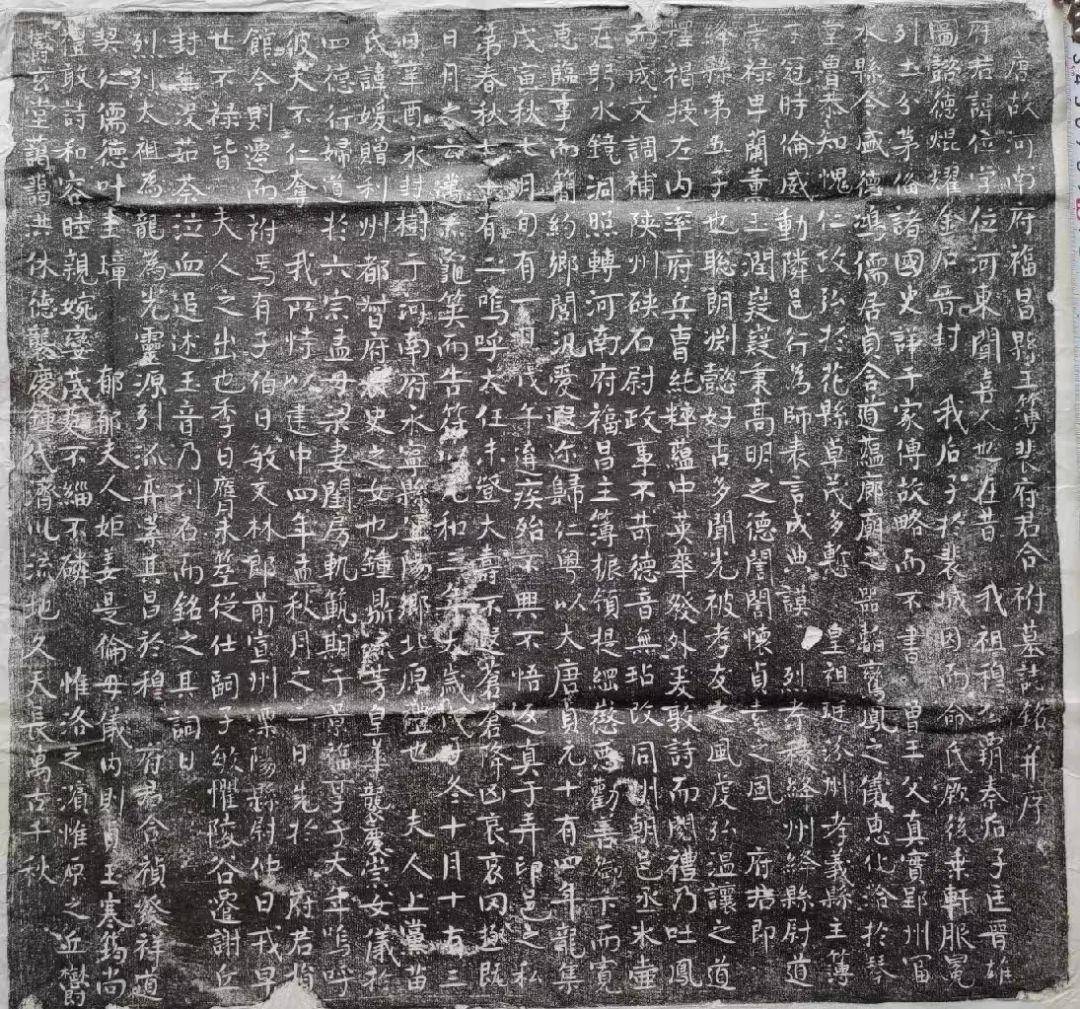 唐故河南府福昌縣主簿裴府君合祔墓誌銘并序
府君諱位字位河東聞喜人也在昔 我祖穆公霸秦后子匡晉雄
圖諮德焜耀金石晉封 我后子於裴城因而命氏厥後乘軒服冕
列土分茅備諸國史詳于家傳故略而不書 曾王父真實鄠州
水縣令盛德鴻儒居貞含道蘊廊廟之器韜鸞鳳之儀惠化洽於琴
堂魯恭知愧仁政弘於花縣卓茂多慙 皇祖 汾州孝義縣主簿
冠時倫威動隣邑行為師表言成典謨 烈考 絳州絳縣尉道
崇祿卑蘭薰玉潤嶷嶷秉高明之德誾誾懷貞素之風 府君即
絳縣第五子也聰朗淵懿好古多聞光被孝友之風虔弘溫讓之道
褐授左內率府兵曹純粹蘊中英華發外敦詩而閱禮乃吐鳳
而成文調補陝州硤石尉政事不苛德音無玷改同州朝邑丞氷壺
在躬水鏡洞照轉河南府福昌主簿振領提綱懲惡勸善御下而寬
惠臨事而簡約鄉閭汎愛遐迩歸仁粵以大唐貞元十有四年龍集
戊寅秋七月旬有一日戊午遘疾殆不興不悟返真于弄印邑之私
第春秋七十有二嗚呼大任未登大壽不遐蒼蒼降凶哀哀罔極既
日月云邁龜筮而告符以元和三年太歲戊子冬十月十有三
日辛酉永封樹于河南府永寧縣宜陽鄉北原禮也 夫人上黨苗
氏諱媛贈利州都督府長史之女也鐘鼎流芳皇華襲慶崇女儀於
四德行婦道於六宗孟母梁妻閨房軌範期于景福享于大年嗚呼
彼天不仁奪我所恃以建中四年孟秋月之二日先於 府君捐
館今則遷而祔焉有子伯曰敏文林郎前宣州溧陽縣尉仲曰戎早
世不祿皆 夫人之出也季曰應未登從仕嗣子 懼陵谷遷謝丘
封蕪沒茹荼泣血追述玉音乃刊石而銘之其詞曰
烈烈太祖為龍為光靈源引派弈葉其昌於穆 府君含禎發祥道
契仁儒德叶圭璋 郁郁夫人姬姜是倫母儀內則 玉寒筠尚
禮敦詩和容睦親婉孌 不緇不磷 惟洛之濱惟原之丘鬱
鬱玄堂藹藹洪休德襲慶鍾代濟川流地久天長萬古千秋